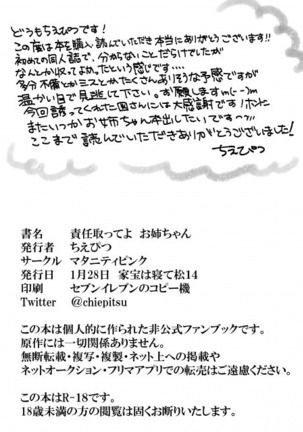 どうもちえぴつです!
この度は本を購入、読んでいただき本当にありがとうございます!!
初めての同人誌で、分からないことだらけでしたが
なんとか収ってよかったという感じです....
多分不備とかミスとかたくさんありそうな予感ですが
温かい目で見逃して下さい。お願いしますm(--)m
今回誘ってくれた皿さんには大感謝です!ホント
またいつかお姉ちゃん本出したいですっ
ここまで読んでいただきありがとうございました!
ちえぴつ
書名 責任取ってよ お姉ちゃん
発行者 ちえぴつ
サークル マタニティピンク
発行日 1月28日 家宝は寝て松14
印刷 セブンイレブンのコピー機
Twitter @chiepitsu
この本は個人的に作られた非公式ファンブックです。
原作には一切関係ありません。
無断転載・複写・複製・ネット上への掲載や
ネットオークション・フリマアプリでの転売はご遠慮ください。
この本はR-18です。
18歳未満の方の閲覧は固くお断りいたします。